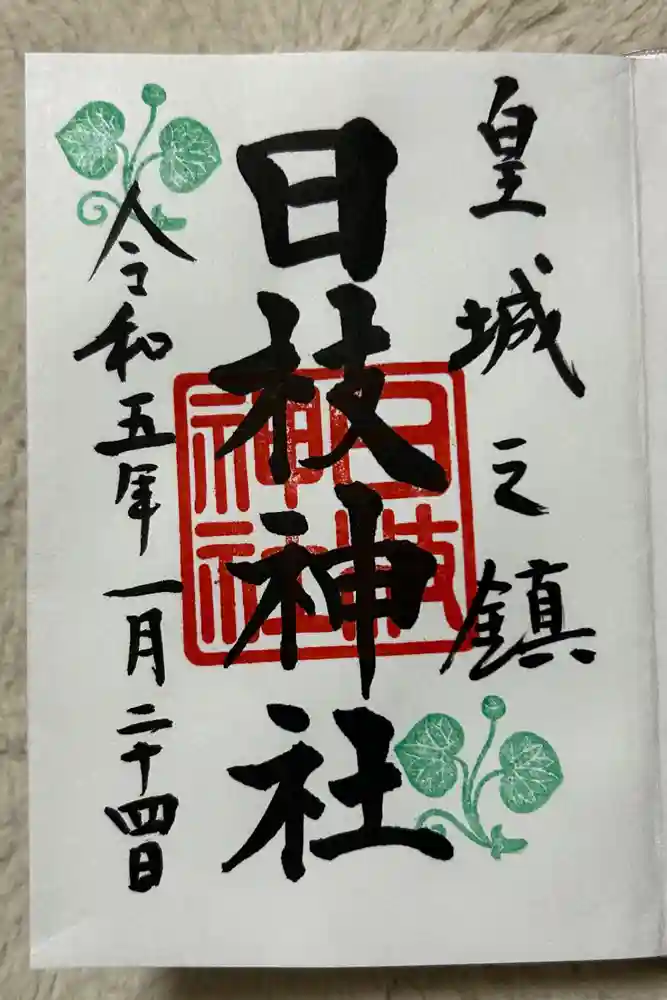 皇城之鎮
日枝神社
日枝神社
令和五年一月二十四日